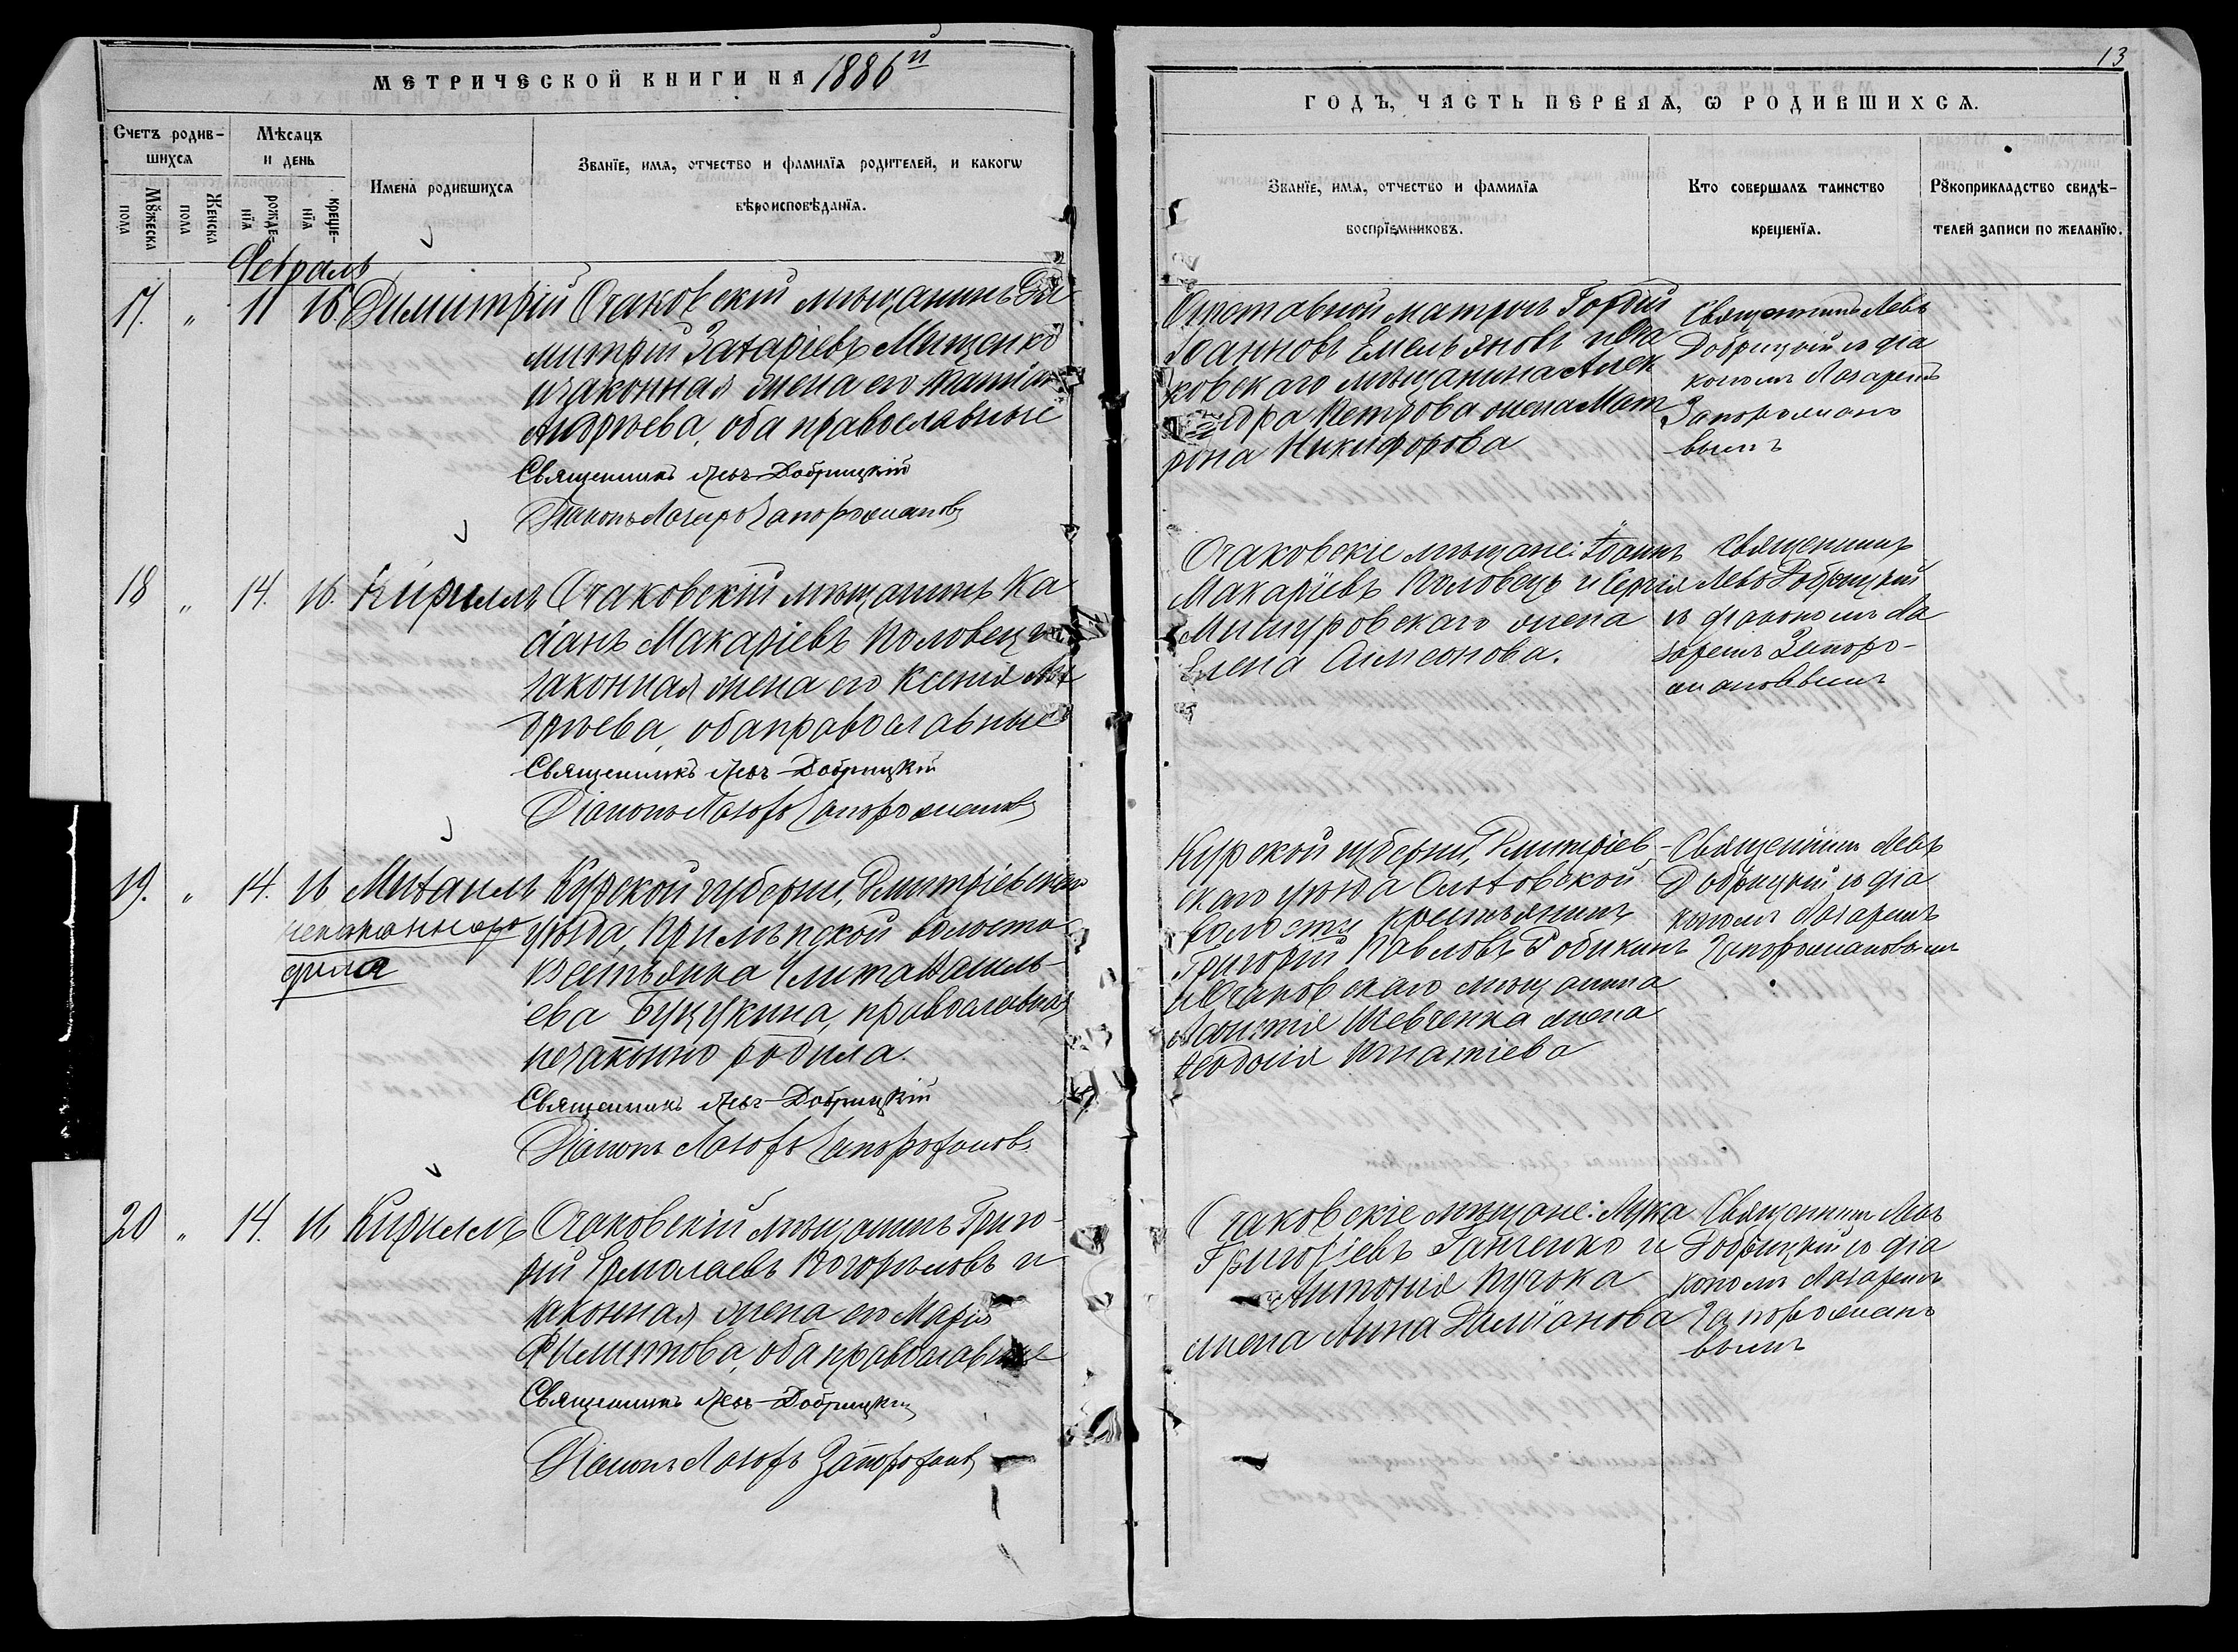 МЕТРИЧЕСКОЙ КНИГИ НА 1886й
Счетъ родив-
шихся
Мѣсяцъ
и день
Имена родившихся
Званїе, имя, отчество и фамилїя родителей, и какогѡ
вѣроисповѣданїя.
Мꙋжеска
пола
Женска
пола
рожде-
нїя
креще-
нїя
Февраль
17. " 11 16. Димитрій Очаковскій мѣщанинъ Ди
митрій Захаріевъ Мищенко
и законная жена его
Андреева, оба православные
Священникъ Левъ Добрицкій
Діаконъ Лазарь Запорожановъ
18 " 14. 16. Кириллъ Очаковскій мѣщанинъ Ка
сіанъ Макаріевъ Половецъ и
законная жена его Ксенія Ан
дреева, оба православные
Священникъ Левъ Добрицкій
Діаконъ Лазарь Запорожановъ
19. " 14. 16 Михаилъ Курской губерніи, Дмитріевскаго
уѣзда, волости
крестьянка Улита
ева православная
незаконно родила.
Священникъ Левъ Добрицкій
Діаконъ Лазарь Запорожановъ
20 " 14. 16 Кириллъ Очаковскій мѣщанинъ Григо-
рій Ермолаевъ Погорѣловъ и
законная жена его Марія
Филиппова, оба православные
Священникъ Левъ Добрицкій
Діаконъ Лазарь Запорожановъ
13
ГОДЪ, ЧАСТЬ ПЕРВАЯ, Ѡ РОДИВШИХСЯ.
Званїе, имя, отчество и фамилїя
воспрїемниковъ.
Кто совершалъ таинство
крещенїя.
Рꙋкоприкладство свидѣ-
телей записи по желанїю.
Отставной матросъ Гордій
Іоанновъ Емельяновъ и Оча
ковскаго мѣщанина Алек
сандра Петрова жена Мат
рона Никифорова
Священникъ Левъ
Добрицкій съ діа
кономъ Лазаремъ
Запорожано
вымъ
Очаковскіе мѣщане: Іоаннъ
Макаріевъ Половецъ и Сергія
Мишуровскаго жена
Елена Симеонова.
Священникъ
Левъ Добрицкій
съ діакономъ Ла
заремъ Запоро-
жановымъ
Курской губерніи, Дмитріев-
скаго уѣзда
волости крестьянинъ
Григорій Павловъ
и Очаковскаго мѣщанина
Шевченка жена
Ѳеодосія Игнатіева
Священникъ Левъ
Добрицкій съ діа
кономъ Лазаремъ
Запорожановымъ
Очаковскіе мѣщане: Лука
Григоріевъ Ганченко и
Антонія
жена Анна
Священникъ Левъ
Добрицкій съ діа
кономъ Лазаремъ
Запорожано
вымъ